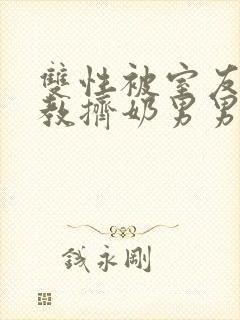 雙性被室友
教擠奶男男
錢永剛